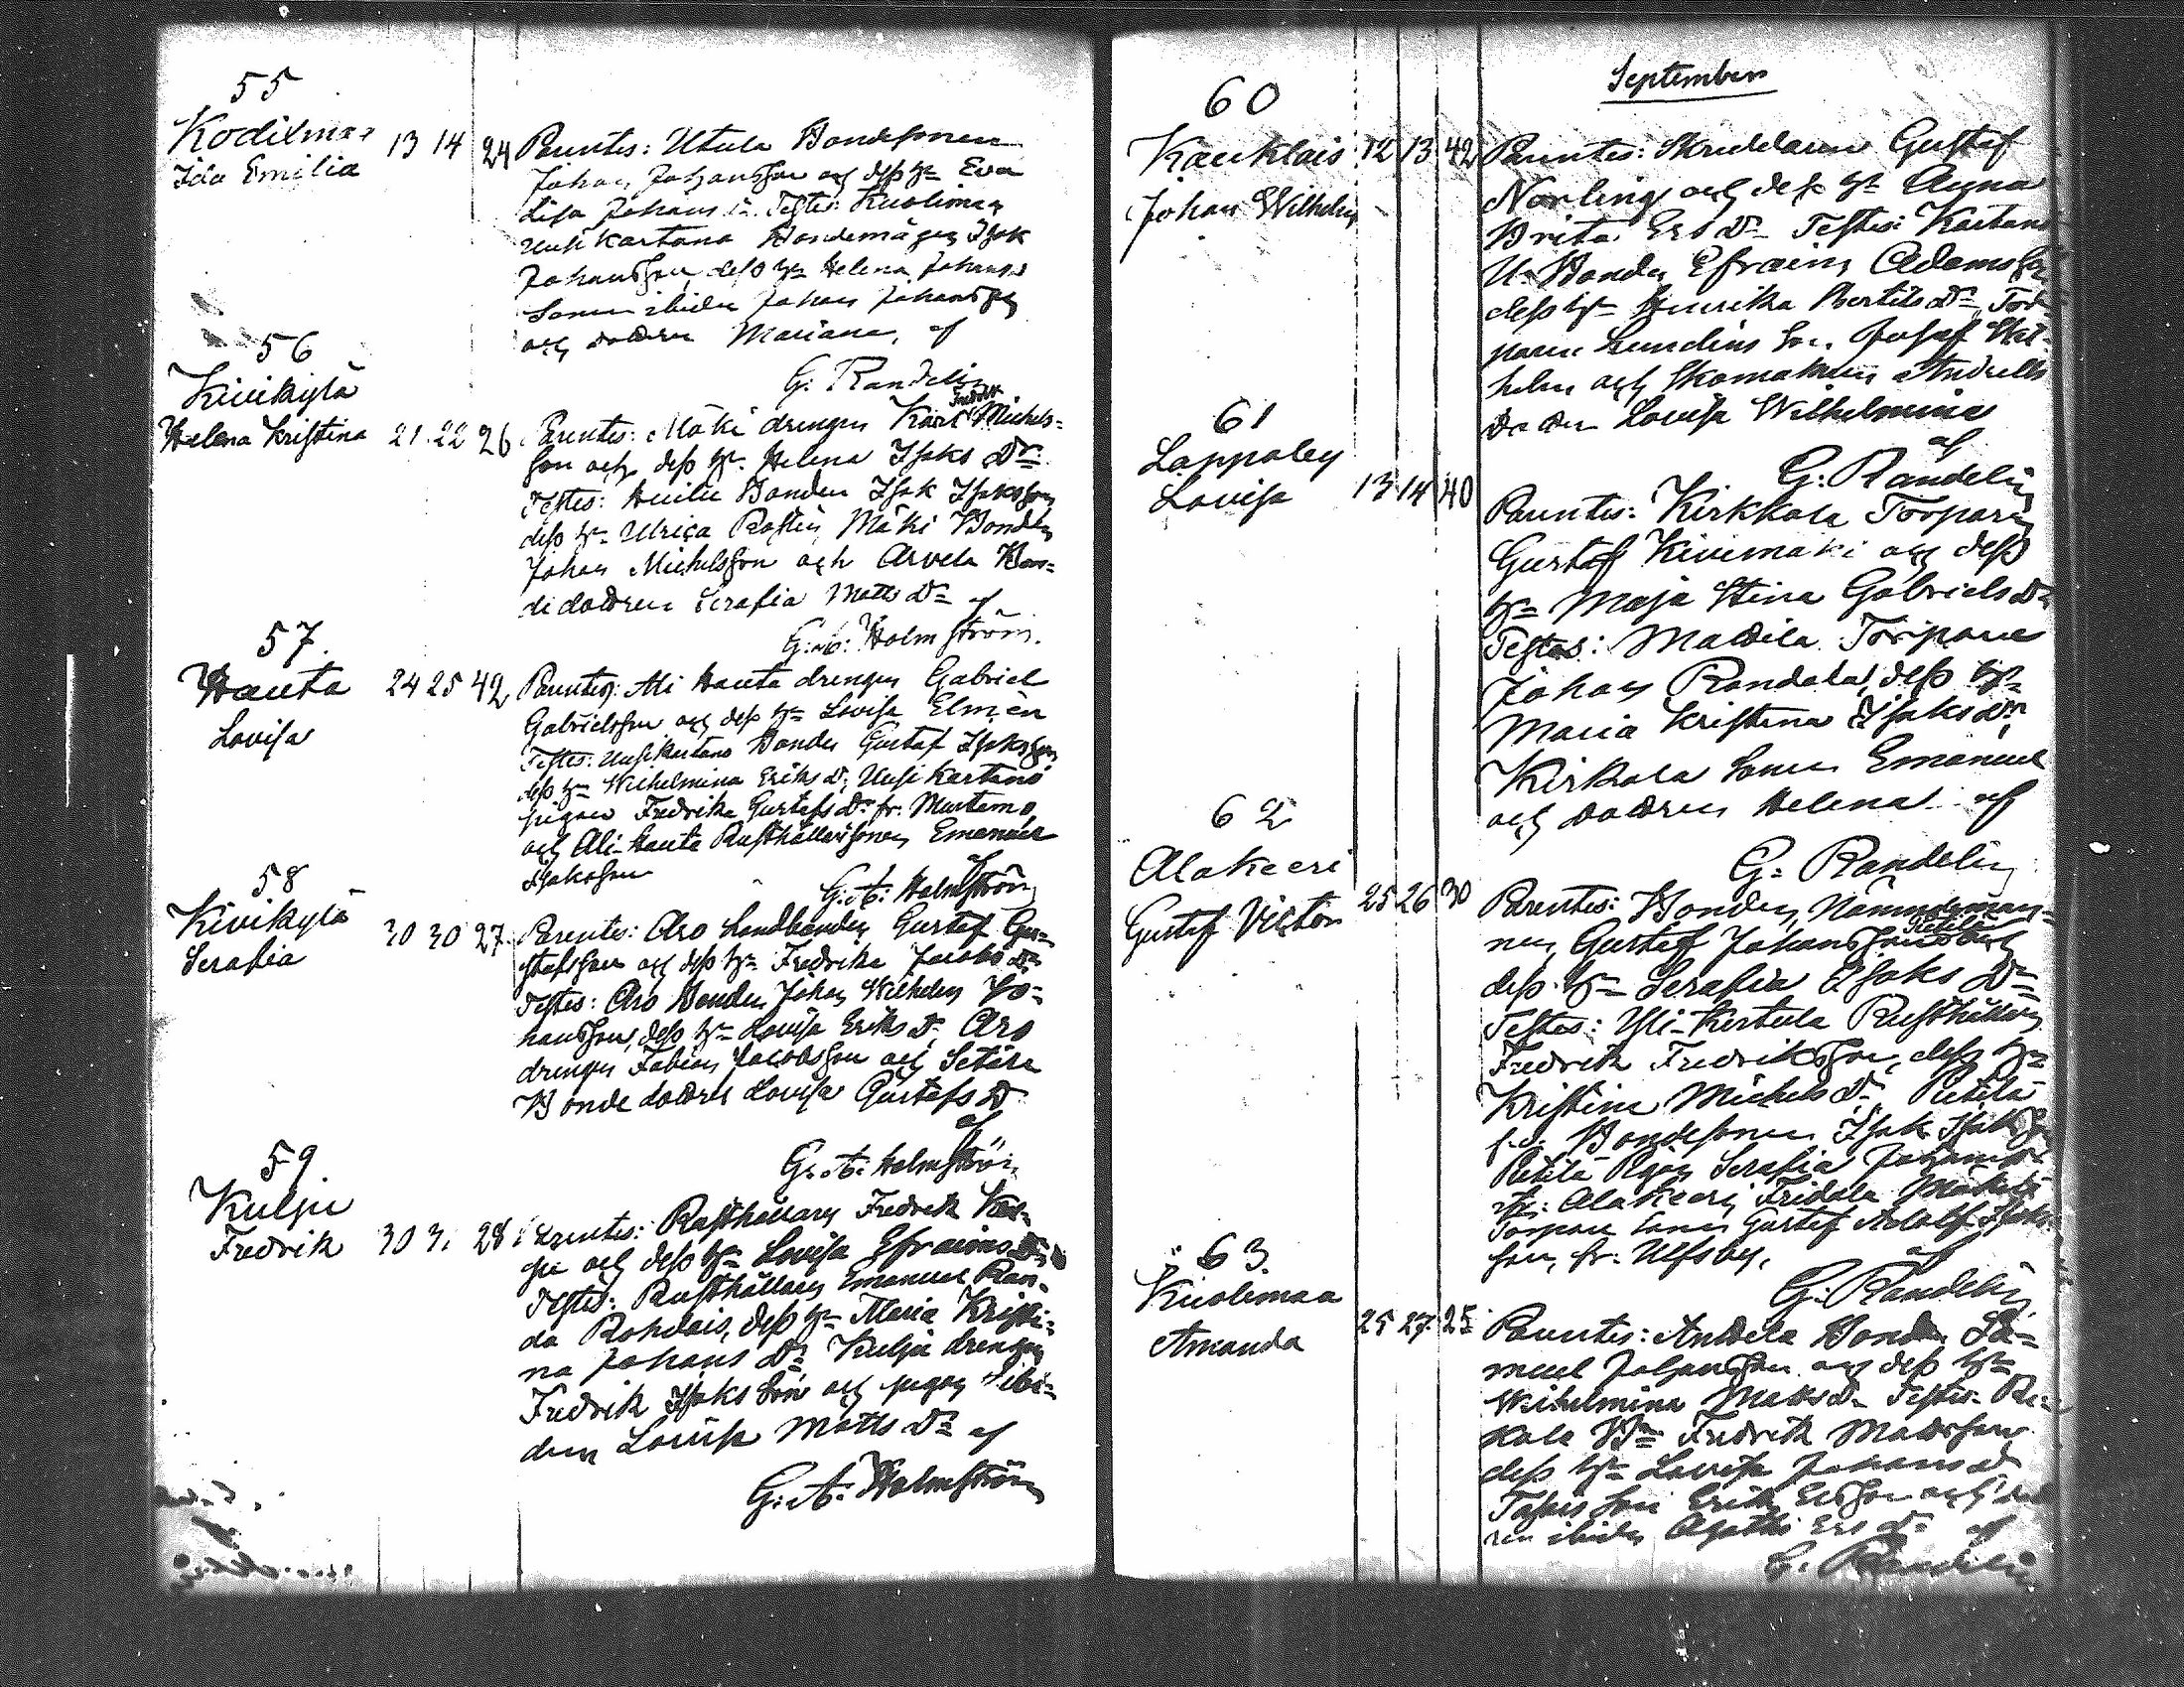 55
Kodixmaa
Ida Emilia 13 14 24
Parentes: Utula Bondesonen
Johan Johansson och dess h:u Eva
Lisa Johans d:r Testes: Kuolimaa
Uusikartano Bondemågen Isak
Johansson, dess h:u Helena Johans
Sonen ibidem Johan Johansson
och dottren Mariana, af
G. Randelin
56
Kivikylä
Helena Kristina 21 22 26
Parentes: Mäki drengen Karl Fredrik Michels-
son och dess h:u Helena Isaks D:r
Testes: Bonden Isak Isaksson
dess h:u Ulrica Rostin, Mäki Bonden
Johan Michelsson och Arvela Bon-
dedottren Serafia Matts D:r af
G. A. Holmström.
57.
Hauta
Lovisa 24 25 42
Parentes: Ali Hauta drengen Gabriel
Gabrielsson och dess h:u Lovisa Elmèn
Testes: Uusikartano Bonden Gustaf Isaksson
dess h:u Wilhelmina Eriks D:r, Uusikartano
pigan Fredrika Gustafs D:r fr. Murtamo,
och Ali-Hauta Rusthållarsonen Emanuel
Isaksson af
G. A. Holmström
58
Kivikylä
Serafia 30 30 27
Parentes: Aro Landbonden Gustaf Gu-
stafsson och dess h:u Fredrika Jacobs D:r
Testes: Aro Bonden Johan Wilhelm Jo-
hansson, dess h:u Lovisa Eriks D:r Aro
drengen Fabian Jacobsson och Setälä
Bonde dottren Lovisa Gustafs D:r
af
G. A. Holmström
59
Kulju
Fredrik 30 31 28
Parentes: Rusthållaren Fredrik Kul-
ju och dess h:u Lovisa Efraims D:r
Testes: Rusthållaren Emanuel Ran-
da Rohdais, dess h:u Maria Kristi-
na Johans D:r, Kulju drengen
Fredrik Isaksson och pigan ibi-
dem Lovisa Matts D:r af
G. A. Holmström
September
60
Kauklais
Johan Wilhelm 12 13 42
Parentes: Skreddaren Gustaf
Norling och dess h:u Anna
Brita Ers D:r Testes: Kartano
U. Bonden Efraim Adamsson
dess h:u Henrika Bertils D:r Tor-
paren Lundins Son Josef Wil-
helm och Skomakaren
Dottren Lovisa Wilhelmina
af
G. Randelin
61
Lappaley
Lovisa 13 14 40
Parentes: Kirkkala Torparen
Gustaf Kivimäki och dess
h:u Maja Stina Gabriels D:r
Testes: Mattila Torparen
Johan Randala, dess h:u
Maria Kristina Isaks D:r,
Kirkala Sonen Emanuel
och dottren Helena af
G. Randelin
62
Alakeeri
Gustaf Victor 25 26 30
Parentes: Bonden, Nämndeman-
nen, Gustaf Johansson Pietilä och
dess h:u Serafia Isaks D:r
Testes: Yli-Kertula Rusthållaren
Fredrik Fredriksson, dess h:u
Kristina Michels D:r Pietilä
f.d. Bondesonen Isak Isaksson
Pietilä Pigan Serafia Johans D:r
Alakeeri Fridala
Torpare sonen Gustaf Adolf Isaks-
son, fr. Ulfsby, af
G. Randelin
63.
Kuolimaa
Amanda 25 27 25
Parentes: Anttila Bonden Sa-
muel Johansson och dess h:u
Wilhelmina Matts D:r Testes:
Fredrik Mattsson
dess h:u Lovisa Johans D:r
Son Erik Ersson och dott-
ren ibidem Agatha Ers D:r af
G. Randelin